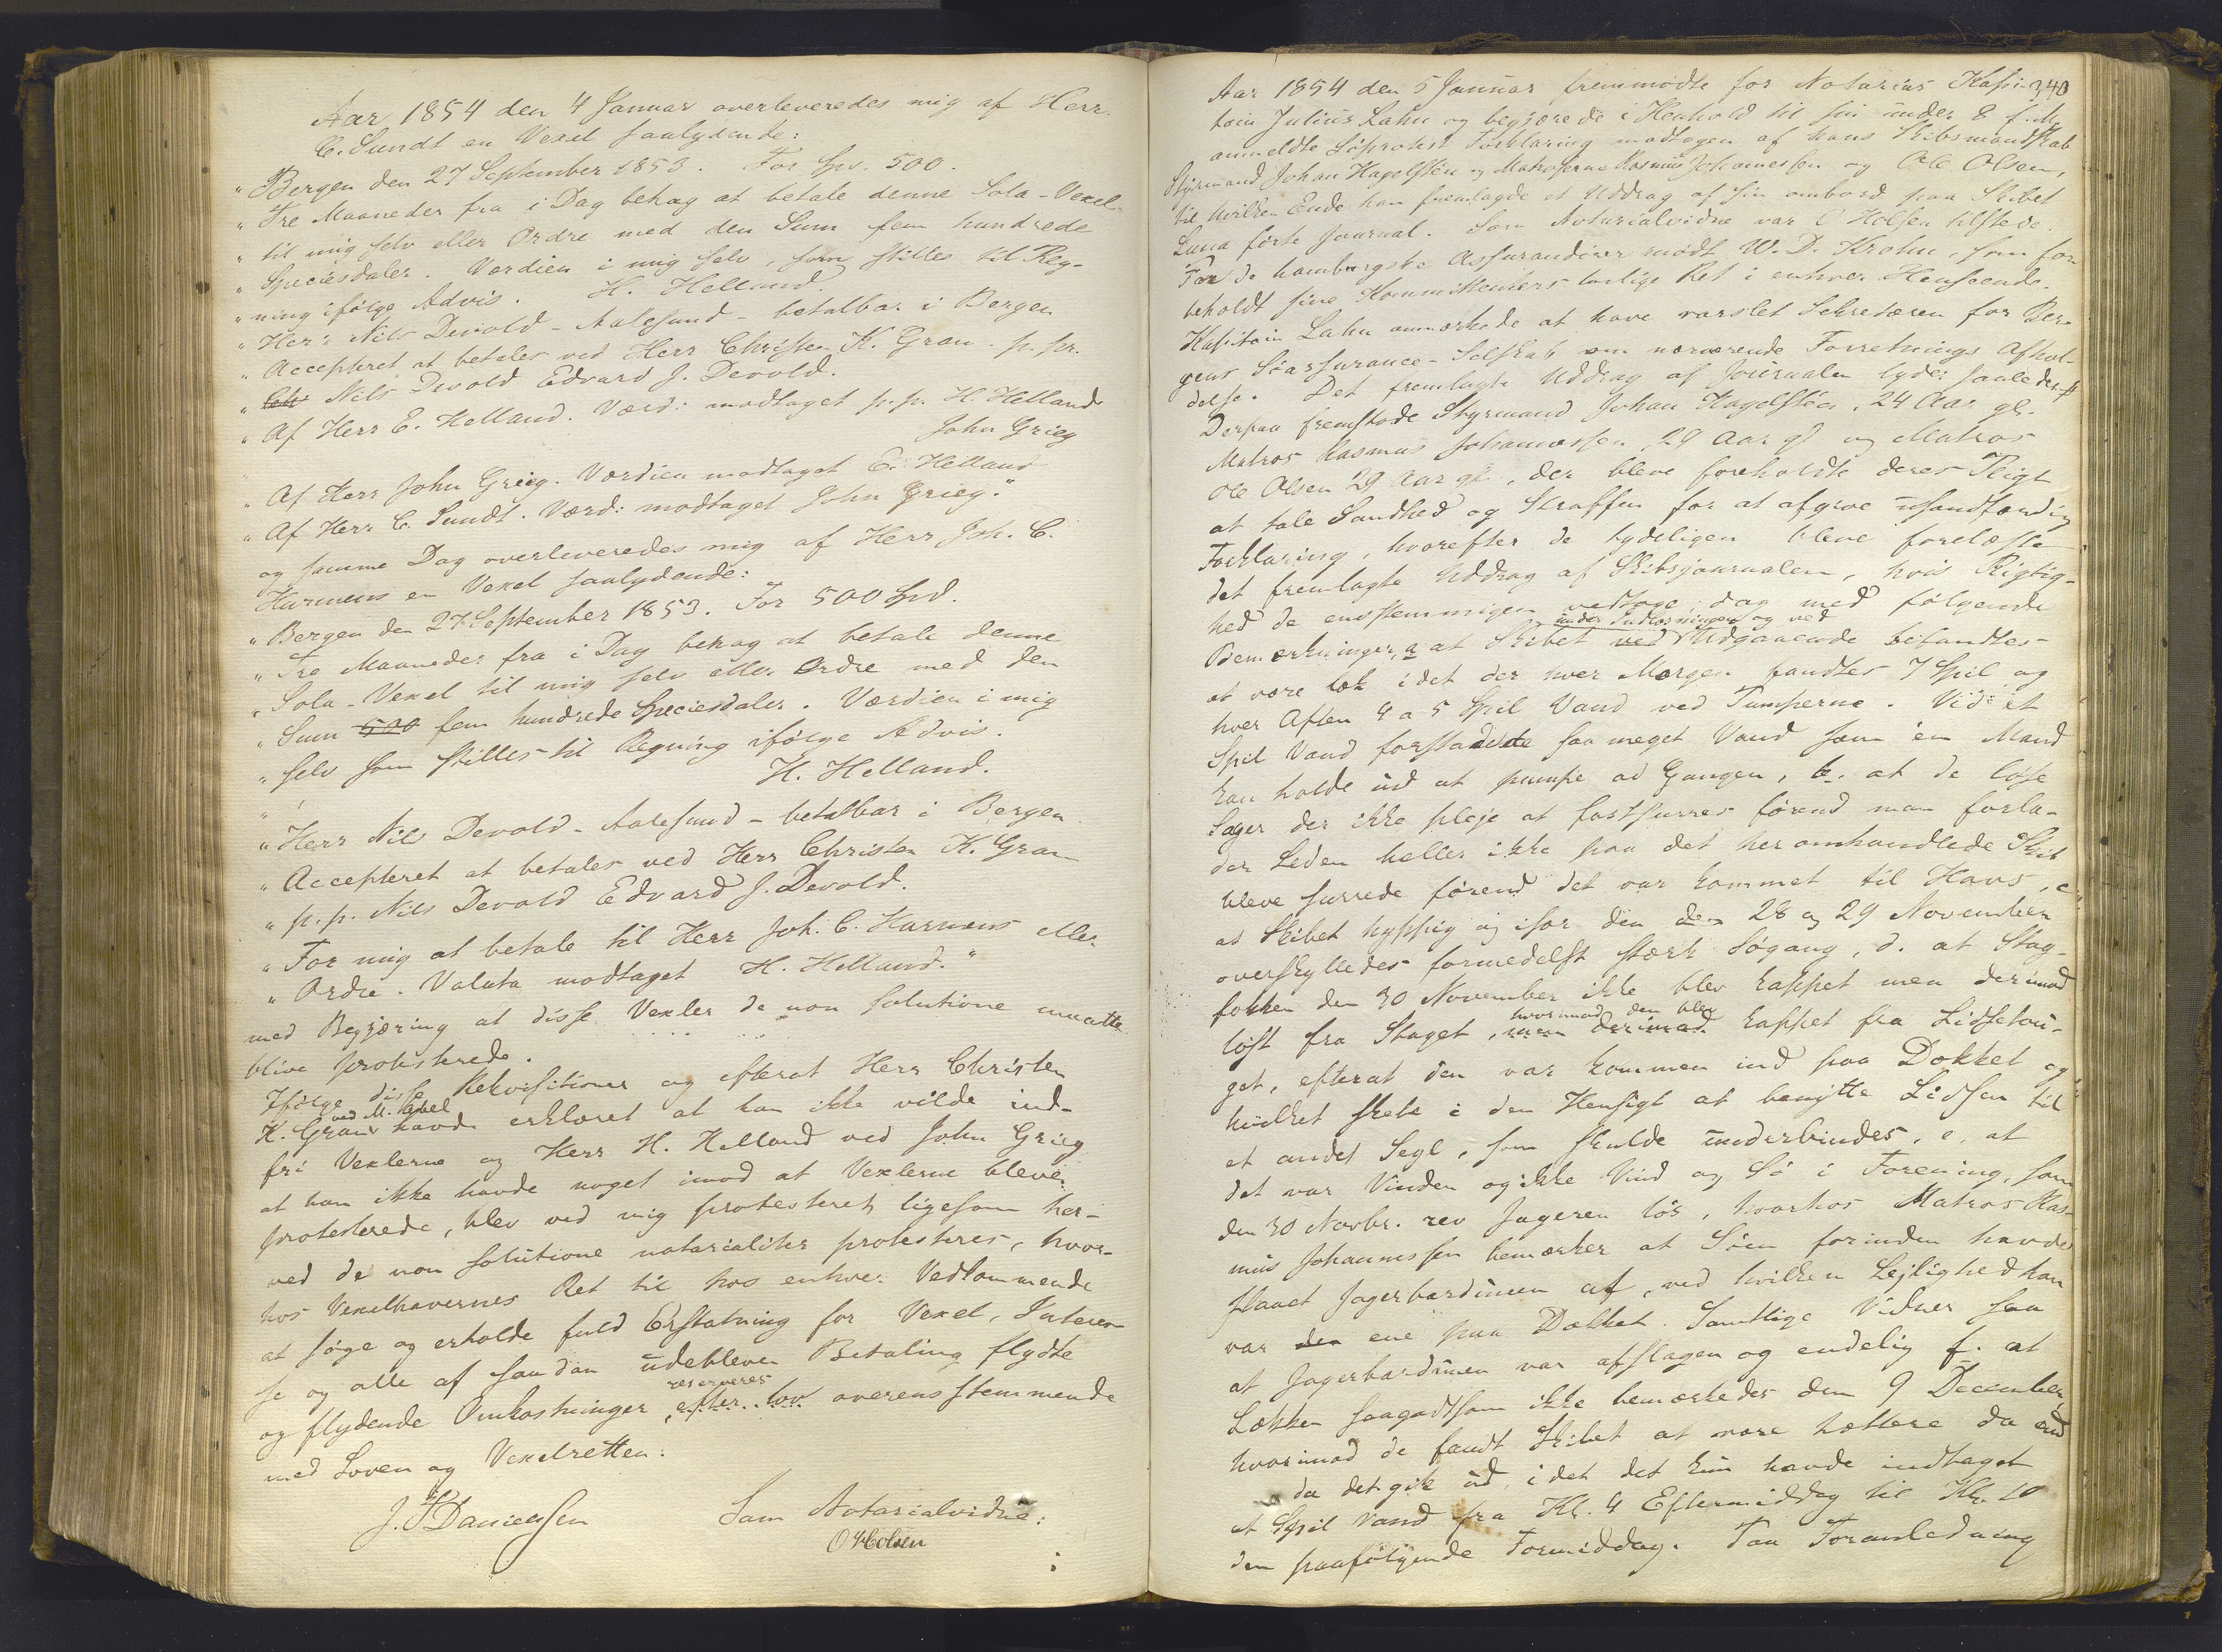 Aar 1854 den 4 Januar overleveredes mig af Herr
C. Sundt en Vexel saalydende:
"Bergen den 27 September 1853. For Spd. 500.
"Tre Maaneder fra i Dag behag at betale denne Sola-Vexel
"til mig selv eller Ordre med den Sum fem hundrede
"Speciesdaler. Værdien i mig selv, som stilles til Reg-
"ning ifølge Advis. H. Helland.
"Herr Nils Devold - Aalesund - betalbar i Bergen
"Accepteret at betales ved Herr Christen K. Gran. p. pr.
" Nils Devold Edvard J. Devold.
"Af Herr E. Helland. Værd: modtaget p.p. H. Helland
John Grieg
"Af Herr John Grieg. Værdien modtaget E. Helland
"Af Herr C. Sundt. Værd: modtaget John Grieg."
og samme Dag overleveredes mig af Herr Joh. C.
Harmens en Vexel saalydende:
"Bergen den 27 September 1853. For 500 Spd.
"Tre Maaneder fra i Dag behag at betale denne
"Sola-Vexel til mig selv eller Ordre med den
"Sum 500 fem hundrede Speciesdaler. Værdien i mig
"selv som stilles til Regning ifølge Advis.
" H. Helland.
"Herr Nils Devold - Aalesund - betalbar i Bergen
"Accepteret at betales ved Herr Christen K. Gran
"p.p. Nils Devold Edvard J. Devold.
"For mig at betale til Herr Joh. C. Harmens eller
"Ordre. Valuta modtaget H. Helland."
med Begjæring at disse Vexler de non solutione maatte
blive protesterede.
Ifølge disse Rekvisitioner og efterat Herr Christen
K. Gran ved M. havde erklæret at han ikke vilde ind-
fri Vexlerne og Herr H. Helland ved John Grieg
at han ikke havde noget imod at Vexlerne bleve
protesterede, blev ved mig protesteret, ligesom her-
ved de non solutione notarialiter protesteres, hvor-
hos Vexelhavernes Ret til hos enhver Vedkommende
at søge og erholde fuld Erstatning for Vexel, Interes-
se og alle af saadan udebleven Betaling flydte
og flydende Omkostninger reserveres efter lov overensstemmende
med Loven og Vexelretten.
J. Danielssen Som Notarialvidne:
O Holsen
340
Aar 1854 den 5 Januar fremmødte for Notarius Kapi-
tain Julius Lahn og begjærede i Henhold til sin under 8 f. M.
anmeldte Søprotest Forklaring modtagen af hans Skibsmandskab
Styrmand Johan Hagelsteen og Matroserne Rasmus Johannessen og Ole Olsen,
til hvilken Ende han fremlagde et Uddrag af sin ombord paa Skibet
Luna førte Journal. Som Notarialvidne var O Holsen tilstede.
For de hamburgske Assurandører mødt W. D. Krohn, som for-
beholdt sine Kommittenters lovlige Ret i enhver Henseende.
Kapitain Lahn anmærkede at have varslet Sekretæren for Ber-
gens Søassurance-Selskab om nærværende Forretnings Afhol-
delse. Det fremlagte Uddrag af Journalen lyder saaledes
Derpaa fremstode Styrmand Johan Hagelsteen, 24 Aar gl.
Matros Rasmus Johannessen 29 Aar gl og Matros
Ole Olsen 29 Aar gl, der bleve foreholdte deres Pligt
at tale Sandhed og Straffen for at afgive usandfærdig
Forklaring, hvorefter de tydeligen bleve forelæste
det fremlagte Uddrag af Skibsjournalen, hvis Rigtig-
hed de eenstemmigen vedtoge, dog med følgende
Bemærkninger, a at Skibet ved under Indladningen og ved Udgaaende befandtes
at være læk idet der hver Morgen fandtes 7 Spil og
hver Aften 4 a 5 Spil Vand ved Pumperne. Ved et
Spil Vand forstodes saa meget Vand som een Mand
kan holde ud at pumpe ad Gangen, b. at de løse
Sager der ikke pleje at fastsurres førend man forla-
der Leden heller ikke paa det heromhandlede Skib
bleve surrede førend det var kommet til Havs, c.
at Skibet hyppig og især den den 28 og 29 November
overskylledes formedelst stærk Søgang, d. at Stag-
fokken den 30 November ikke blev kappet men derimod
løst fra Staget, men derimod hvorimod den blev kappet fra Lidsetou-
get, efterat den var kommen ind paa Dækket og
hvilket skete i den Hensigt at benytte Lidsen til
et andet Segl, som skulde underbindes, e. at
det var Vinden og ikke Vind og Sø i Forening, som
den 30 Novbr. rev Jageren løs, hvorhos Matros Ras-
mus Johannessen bemærker at Søen forinden havde
slaaet Jagerbarduunen af, ved hvilken Lejlighed han
var den ene paa Dækket. Samtlige Vidner saa
at Jagerbarduunen var afslagen og endelig f. at
Lækken saagodtsom ikke bemærkedes den 9 December,
hvorimod de fandt Skibet at være tættere da end
da det gik ud, idet det kun havde indtaget
et Spil Vand fra Kl. 4 Eftermiddag til Kl. 10
den paafølgende Formiddag. Paa Foranledning